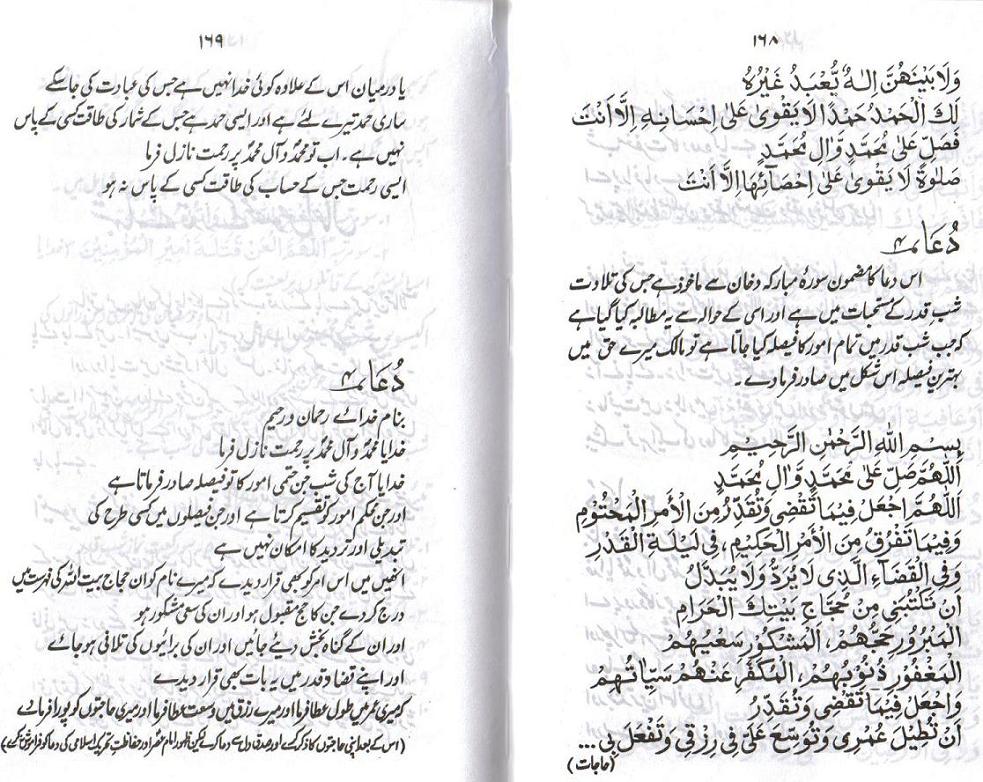 ١٦٨
وَلَا بَيْنَهُنَّ اِلٰهٌ يُّعْبَدُ غَيْرُهٗ
لَكَ الْحَمْدُ حَمْدًا لَا يَقْوٰى عَلٰى اِحْسَانِهٖ اِلَّا اَنْتَ
فَصَلِّ عَلٰى مُحَمَّدٍ وَّاٰلِ مُحَمَّدٍ
صَلٰوةً لَا يَقْوٰى عَلٰى اِحْصَآئِهَا اِلَّا اَنْتَ
دُعَا ۴
اس دعا کا مضمون سورۂ مبارکہ دخان سے ماخوذ ہے جس کی تلاوت
شب قدر کے مستحبات میں ہے اور اسی کے حوالہ سے یہ مطالبہ کیا گیا ہے
کہ جب شب قدر میں تمام امور کا فیصلہ کیا جاتا ہے تو مالک میرے حق میں
بہترین فیصلہ اس شکل میں صادر فرما دے۔
بِسْمِ اللّٰهِ الرَّحْمٰنِ الرَّحِيْمِ
اَللّٰهُمَّ صَلِّ عَلٰى مُحَمَّدٍ وَّاٰلِ مُحَمَّدٍ
اَللّٰهُمَّ اجْعَلْ فِيْمَا تَقْضِيْ وَتُقَدِّرُ مِنَ الْاَمْرِ الْمَحْتُوْمِ
وَفِيْمَا تَفْرُقُ مِنَ الْاَمْرِ الْحَكِيْمِ، فِيْ لَيْلَةِ الْقَدْرِ
وَفِي الْقَضَآءِ الَّذِيْ لَا يُرَدُّ وَلَا يُبَدَّلُ
اَنْ تَكْتُبَنِيْ مِنْ حُجَّاجِ بَيْتِكَ الْحَرَامِ
الْمَبْرُوْرِ حَجُّهُمْ، اَلْمَشْكُوْرِ سَعْيُهُمْ
الْمَغْفُوْرِ ذُنُوْبُهُمْ، اَلْمُكَفَّرِ عَنْهُمْ سَيِّاٰتُهُمْ
وَاجْعَلْ فِيْمَا تَقْضِيْ وَتُقَدِّرُ
اَنْ تُطِيْلَ عُمْرِيْ وَتُوَسِّعَ عَلَيَّ فِيْ رِزْقِيْ وَتَفْعَلَ بِيْ ...
(حاجات)
١٦٩
یا درمیان اس کے علاوہ کوئی خدا نہیں ہے جس کی عبادت کی جا سکے
ساری حمد تیرے لئے ہے اور ایسی حمد ہے جس کے شمار کی طاقت کسی کے پاس
نہیں ہے۔ اب تو محمدؐ و آل محمدؐ پر رحمت نازل فرما
ایسی رحمت جس کے حساب کی طاقت کسی کے پاس نہ ہو
دُعَا ۴
بنام خدائے رحمان و رحیم
خدایا محمدؐ و آل محمدؐ پر رحمت نازل فرما
خدایا آج کی شب جن حتمی امور کا تو فیصلہ صادر فرماتا ہے
اور جن محکم امور کو تقسیم کرتا ہے اور جن فیصلوں میں کسی طرح کی
تبدیلی اور تردید کا امکان نہیں ہے
انھیں میں اس امر کو بھی قرار دیدے کہ میرے نام کو ان حجاج بیت اللہ کی فہرست میں
درج کر دے جن کا حج مقبول ہو اور ان کی سعی مشکور ہو
اور ان کے گناہ بخش دیئے جائیں اور ان کی برائیوں کی تلافی ہو جائے
اور اپنے قضا و قدر میں یہ بات بھی قرار دیدے
کہ میری عمر میں طول عطا فرما اور میرے رزق میں وسعت عطا فرما اور میری حاجتوں کو پورا فرما دے
(اس کے بعد اپنی حاجتوں کا ذکر کرے اور صدق دل سے دعا کرے لیکن ظہور امام عصرؑ اور حفاظت اسلامی کی دعا کو فراموش نہ کرے)